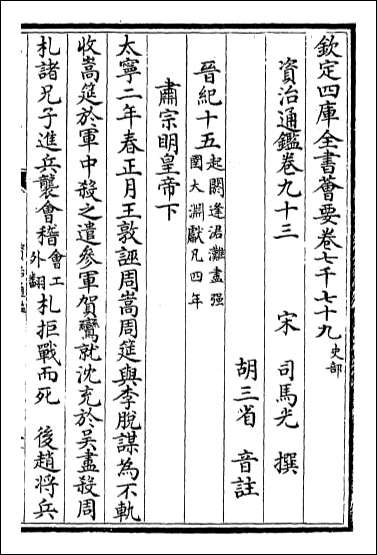 欽定四庫全書薈要卷七千七十九 史部
資治通鑑卷九十三
宋 司馬光 撰
胡三省 音註
晉紀十五 起閼逢涒灘盡强
圉大淵獻凡四年
肅宗明皇帝下
太寧二年春正月王敦誣周嵩周筵與李脫謀為不軌
收嵩筵於軍中殺之遣參軍賀鸞就沈充於吳盡殺周
札諸兄子進兵襲會稽 會工
外翻 札拒戰而死 後趙將兵